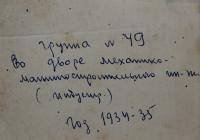 группа N 49
Во дворе механико-
машиностроительного ин-та
(индустр.)
Год 1934-35